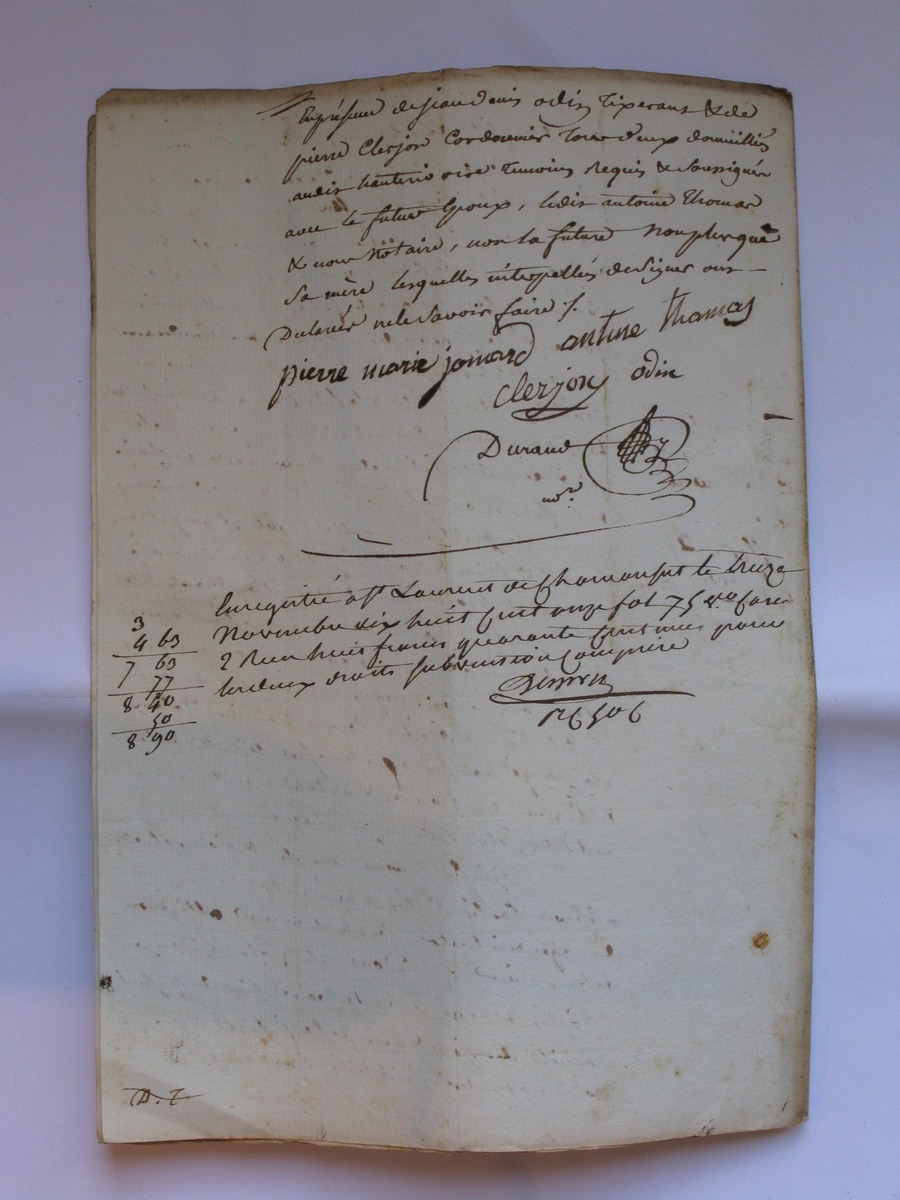 En présence de jean denis odin Tixerant & de
pierre Clerjon Cordonnier tous deux domiciliés
audit hauterivoire temoins Requis & soussignés
avec le futur Epoux, ledit antoine Thomas
& nous Notaire, non la future nonplusque
Sa mère lesquelles interpellés de signer ont
Déclarés ne le savoir faire /.
pierre marie jomard antine thomas
clerjon odin
Durand
no.re
Enregistré à St Laurent de Chamousset le treize
Novembre dix huit cent onze fol 75 v.o Case
2 Reçu huit francs quarante centimes pour
les deux droits subvention Comprise
3
4 63
7 63
77
8 40
50
8 90
D. T.